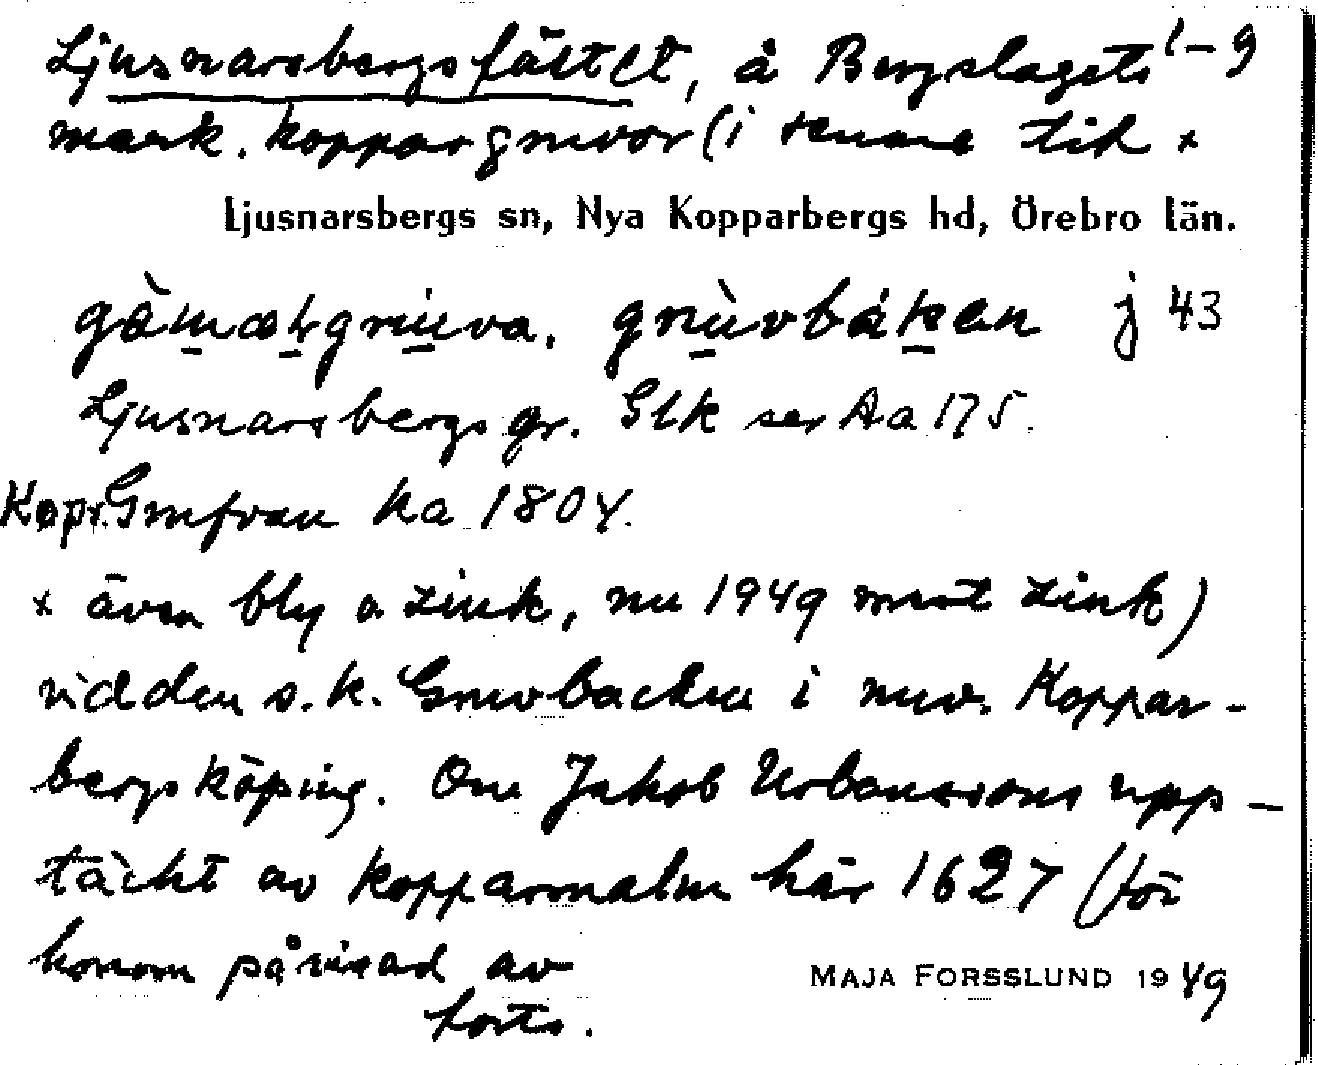 Ljusnarsbergsfältet, å Bergslagets 1-9
märk. koppargruvor (i senare tid x
Ljusnarsbergs sn, Nya Kopparbergs hd, Örebro län.
gruva. j 43
Ljusnarsbergs gr. Glk ser Aa 175.
Kop. Gruvfrau ka 1804.
x även bly o zink, nu 1949 mest zink)
vid den s.k. Gruvbacken i nuv. Koppar-
bergs köping. Om Jakob Urbanssons upp-
täckt av kopparmalm här 1627 (för
honom påvisad av
MAJA FORSSLUND 1949
forts.